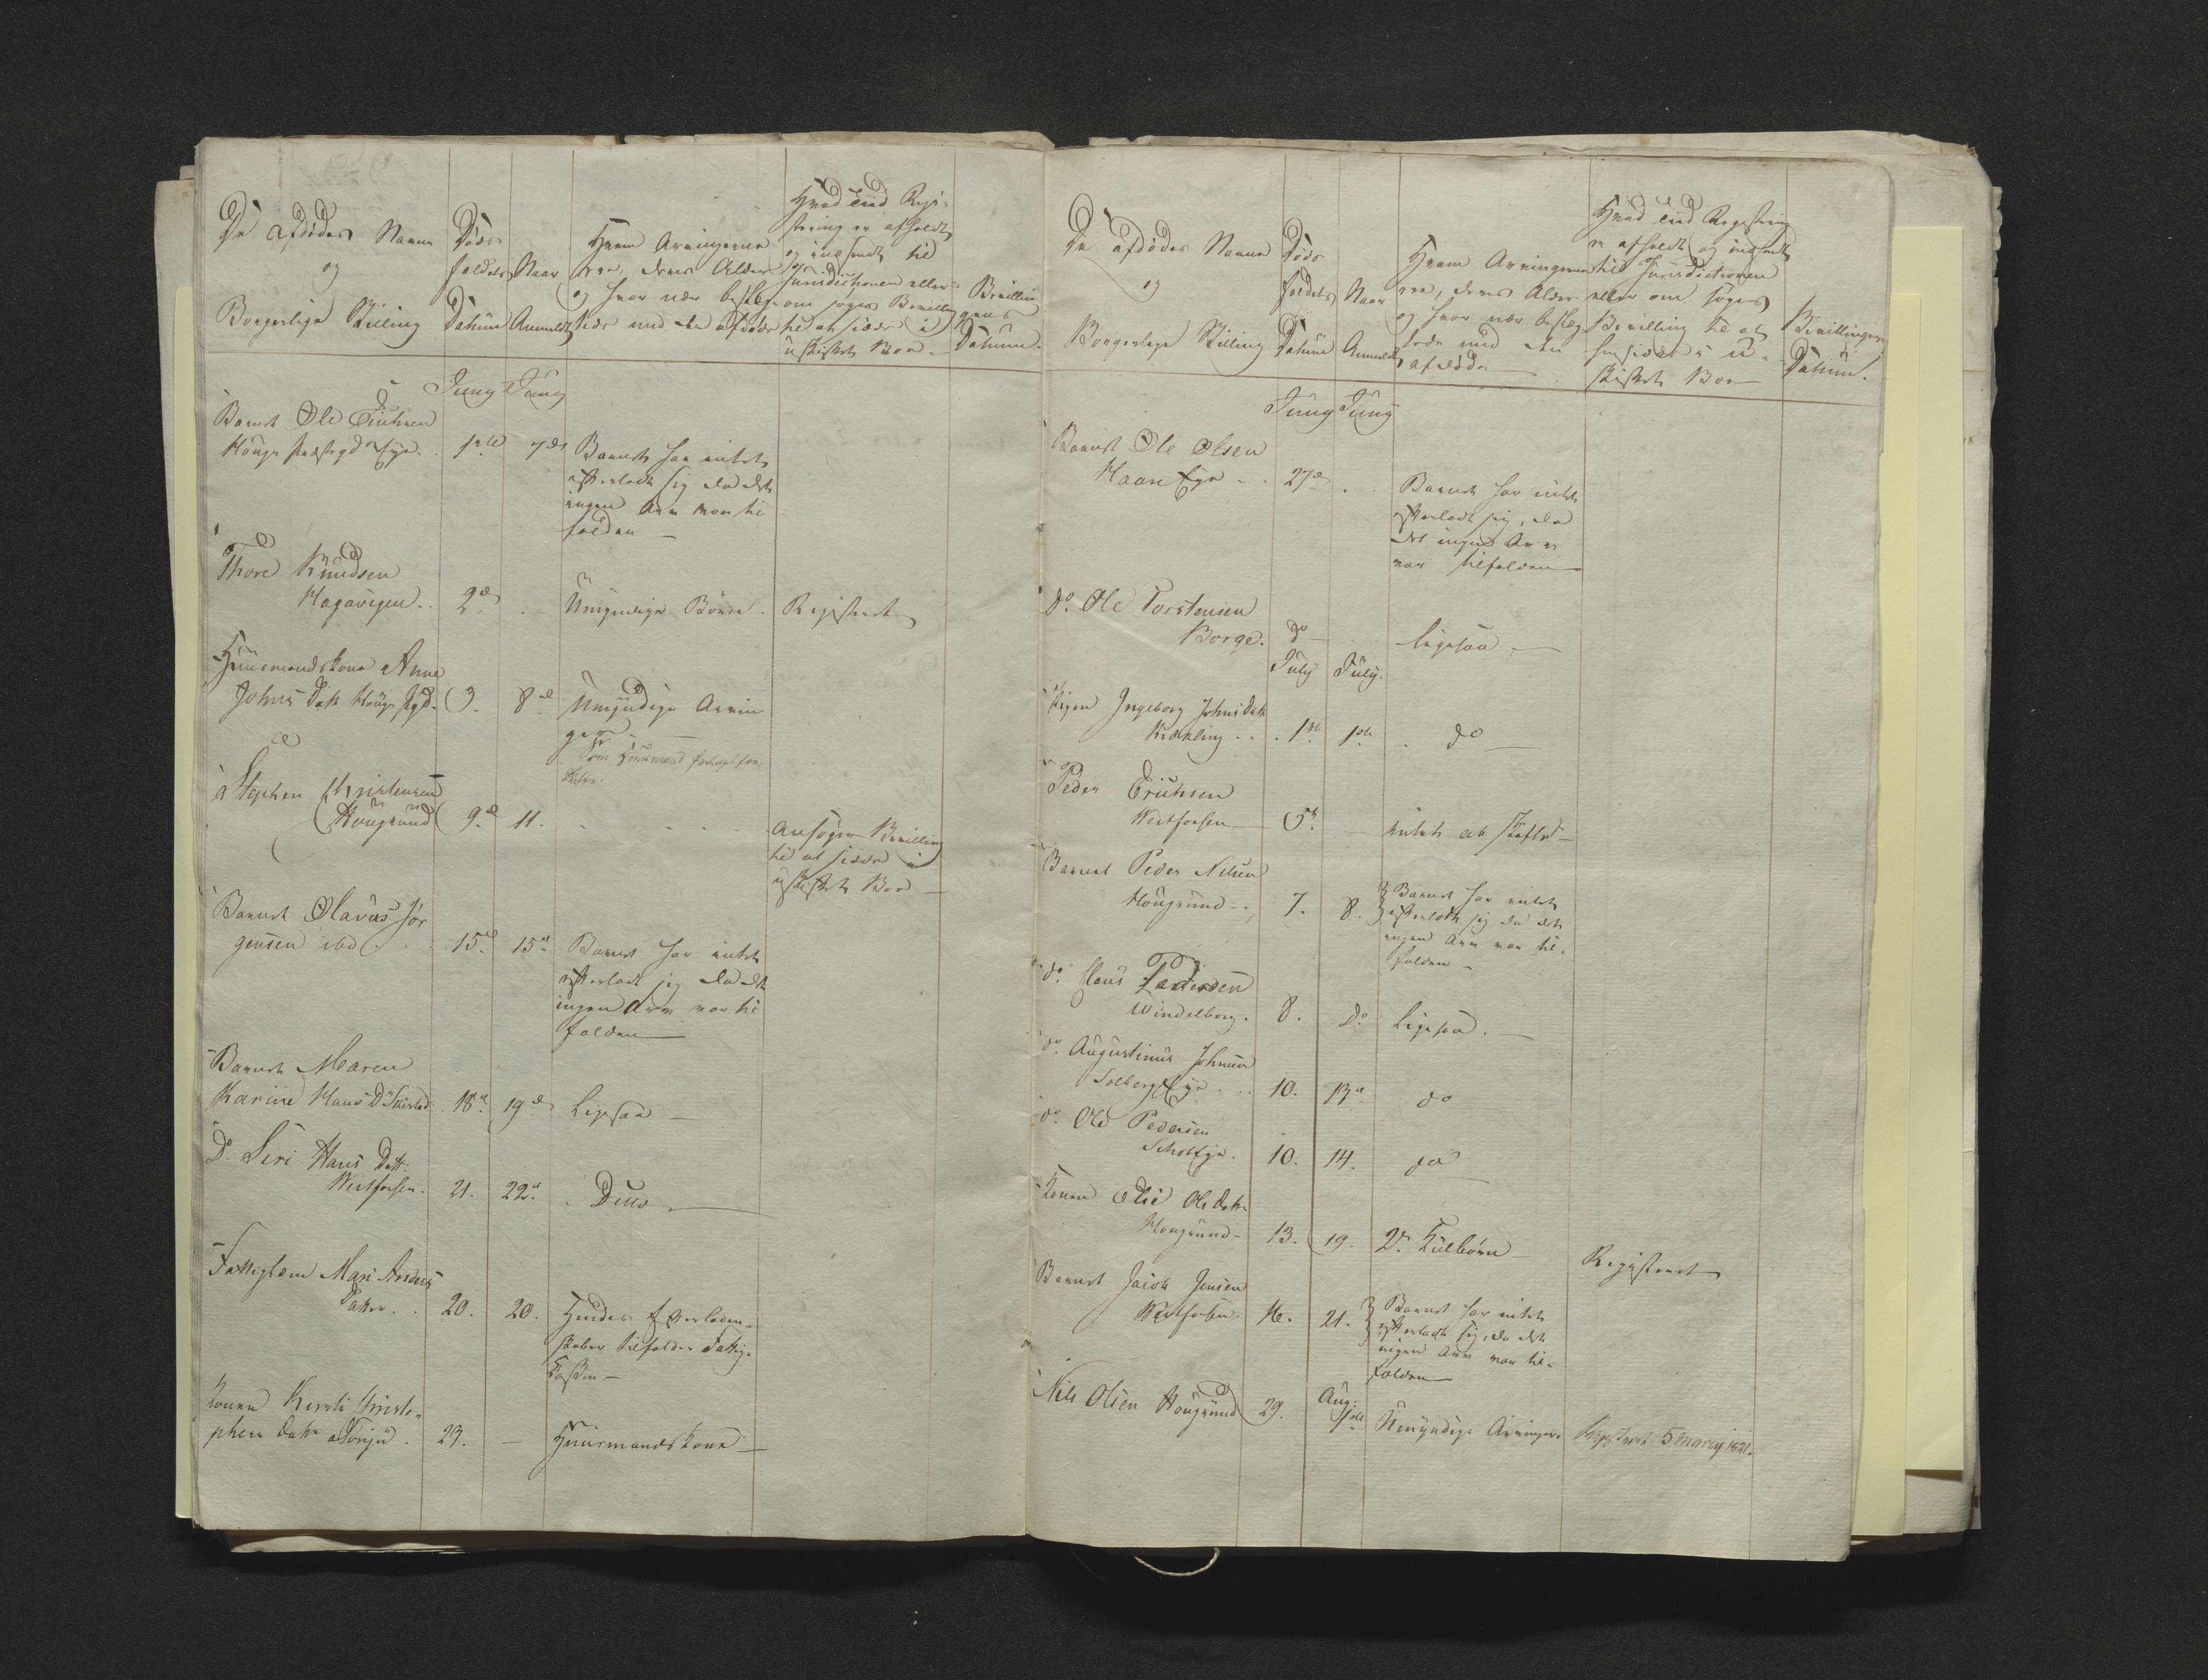 De afdødes Navne
og
Borgerlige Stilling
Døds
faldets
Datum
Naar
Anmeldt
Hvem Arvingerne
ere, deres Alder
og hvor nær beslæg
tede med den afdøde
Hvad End Regi-
strering er afholdt
og indsendt til
Jurisdictionen eller
om søges Bevilling
til at sidde i
uskiftet Boe
Bevillin
gens
Datum.
Juny Juny
Barnet Ole Erichsen
Houge Præstegd Eye. 1ste 7de Barnet har intet
efterladt sig da det
ingen Arv var til
falden
Thore Knudsen
Hagavigen. 2de Umyndige Børn. Registeret
Huusmandskone Anne
Johns Datt Houge Pgd. 3. 8de Umyndige Arvin
ger
Stephen Christensen
Hougsund 9de 11. Ansøger Bevilling
til at sidde i
uskiftet Boe
Barnet Olavus Jør
gensen ibd 15de 15de Barnet har intet
efterladt sig da det
ingen Arv var til
falden
Barnet Maren
Karine Hans D. 18de 19de Ligesaa
Do Siri Hans Datt.
Westfossen. 21. 22de Ditto
Fattiglem Mari Anders
Datter. 20. 20. Hendes Efterladen-
skaber tilfalder Fattig-
Cassen
Konen Kirsti Christo-
phers Datr 23. Huusmandskone
De afdødes Navne
og
Borgerlige Stilling
Døds
faldets
Datum
Naar
Anmeldt
Hvem Arvingerne
ere, deres Alder
og hvor nær beslæg
tede med den
afdøde
Hvad End Registring
er afholdt og indsendt
til Jurisdictionen
eller om søges
Bevilling til at
hensidde i u-
skiftet Boe
Bevillingens
Datum.
Juny Juny
Barnet Ole Olsen
Haare Eye 27de Barnet har intet
efterladt sig, da
det ingen Arv
var tilfalden
Do Ole Torstensen
Borge. do Ligesaa
July July.
Pigen Ingeborg Johns Datt
Kiækling 1ste 1ste do
Peder Erichsen
Westfossen 5te intet at skifte
Barnet Peder Nilsen
Hougsund 7. 8. Barnet har intet
efterladt sig da det
ingen Arv var til-
falden
do Hans Pedersen
Windelborg. 8. do Ligesaa.
do Augustinus Johnsen
Solberg Eye 10. 13de do
do Ole Pedersen
10. 14. do
Konen Elie Ols Datr
Hougsund 13. 19. 2de Kulbørn Registeret
Barnet Jacob Jensen
Westfossen 16. 21. Barnet har intet
efterladt sig, da det
ingen Arv var til-
falden
Aug:
Nils Olsen Hougsund 29. 1ste Umyndige Arvinger. Registeret 5 Marty 1821.